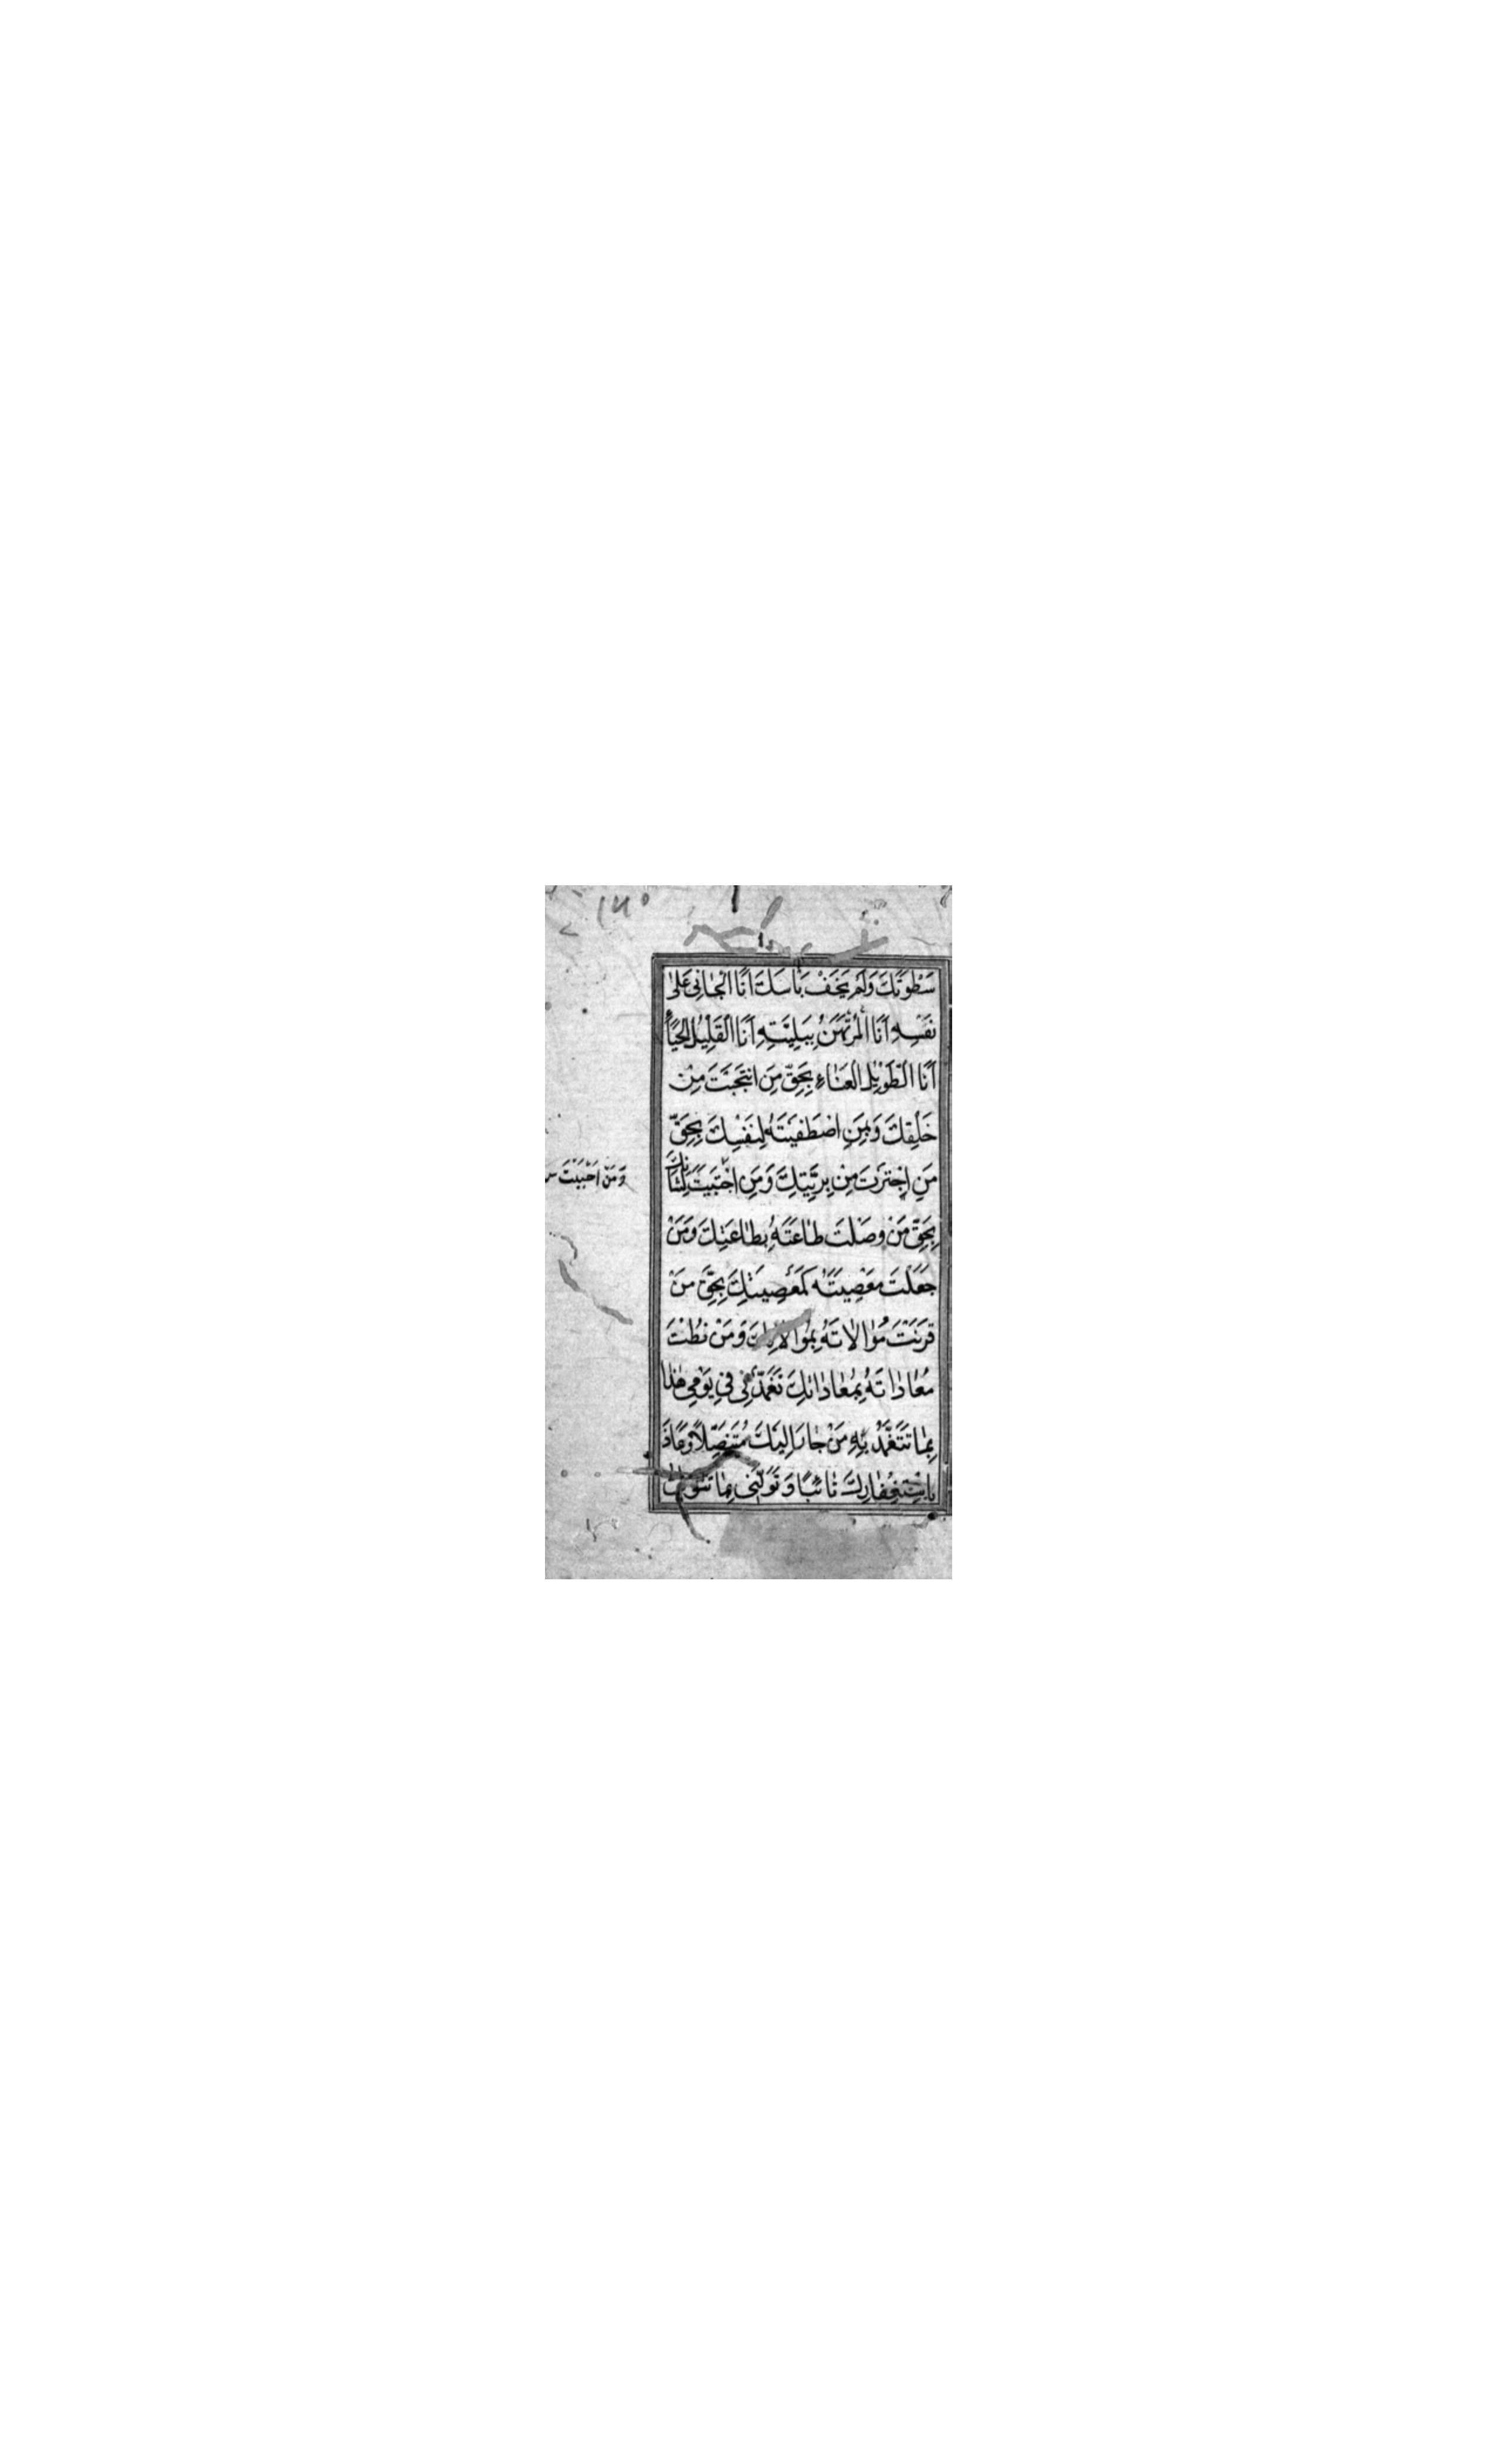 سَطْوَتَكَ وَلَمْ يَخَفْ بَأْسَكَ اَنَا الْجَانِى عَلٰى
نَفْسِهِ اَنَا الْمُرْتَهَنُ بِبَلِيَّتِهِ اَنَا الْقَلِيْلُ الْحَيَاءِ
اَنَا الطَّوِيْلُ الْعَنَاءِ بِحَقِّ مَنِ انْتَجَبْتَ مِنْ
خَلْقِكَ وَبِمَنِ اصْطَفَيْتَهُ لِنَفْسِكَ بِحَقِّ
مَنِ اخْتَرْتَ مِنْ بَرِيَّتِكَ وَمَنِ اجْتَبَيْتَ لِشَأْنِكَ
بِحَقِّ مَنْ وَصَلْتَ طَاعَتَهُ بِطَاعَتِكَ وَمَنْ
جَعَلْتَ مَعْصِيَتَهُ كَمَعْصِيَتِكَ بِحَقِّ مَنْ
قَرَنْتَ مُوَالَاتَهُ بِمُوَالَاتِكَ وَمَنْ نُطْتَ
مُعَادَاتَهُ بِمُعَادَاتِكَ تَغَمَّدْنِى فِى يَوْمِى هٰذَا
بِمَا تَتَغَمَّدُ بِهِ مَنْ جَارَ اِلَيْكَ مُتَنَصِّلًا وَعَاذَ
بِاسْتِغْفَارِكَ تَائِبًا وَتَوَلَّنِى بِمَا تَتَوَلّٰى
وَمَنْ اَحْبَبْتَ
۱۷۵